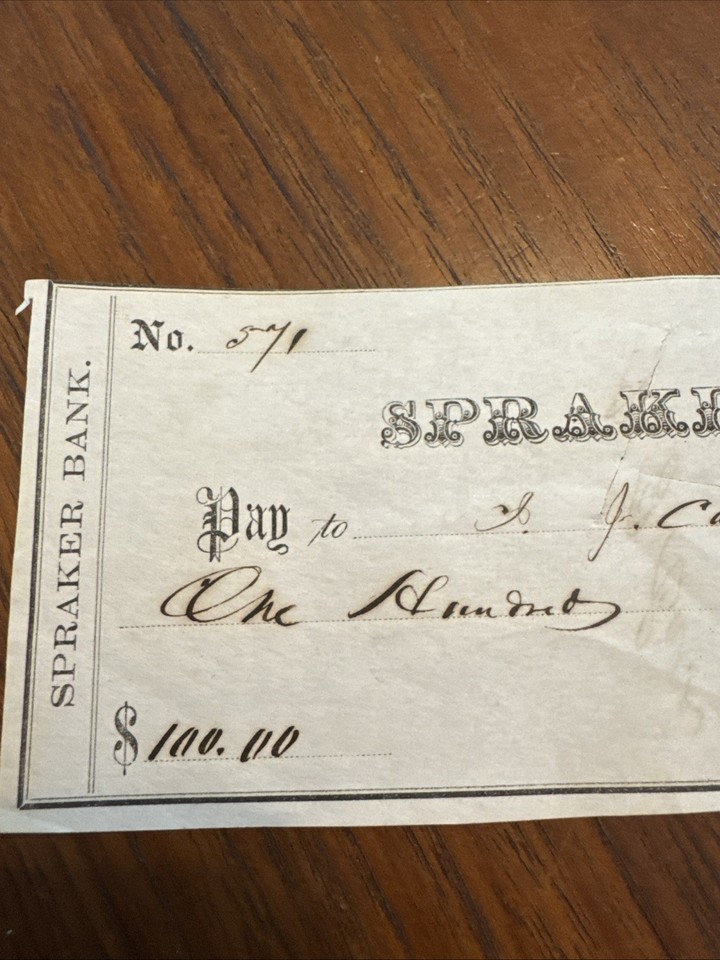 No. 571
SPRAKER BANK.
SPRAKE
Pay to J. J. Ca
One Hundred
$ 100.00